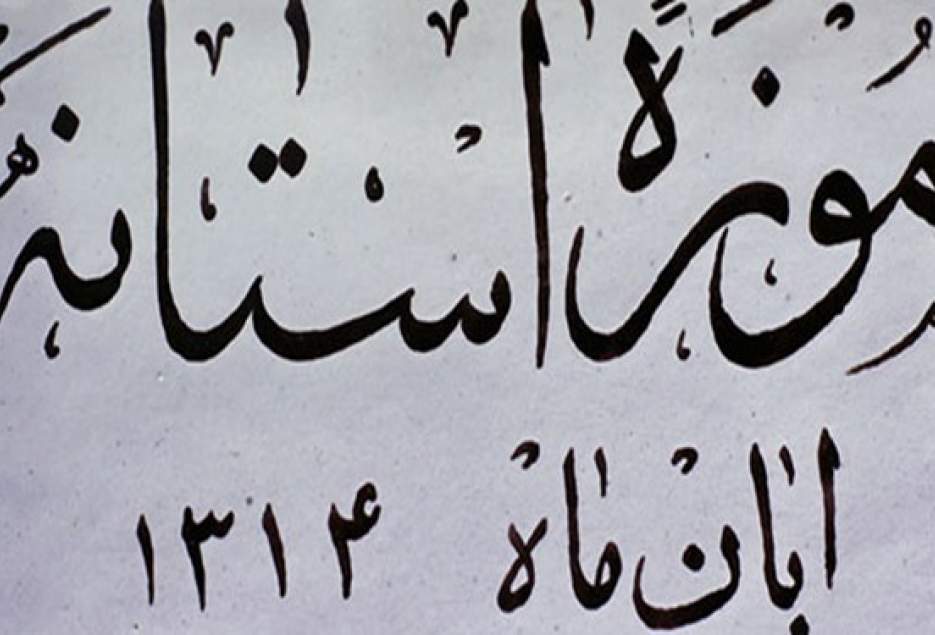 موزه استانه
ابان ماه ۱۳۱۴